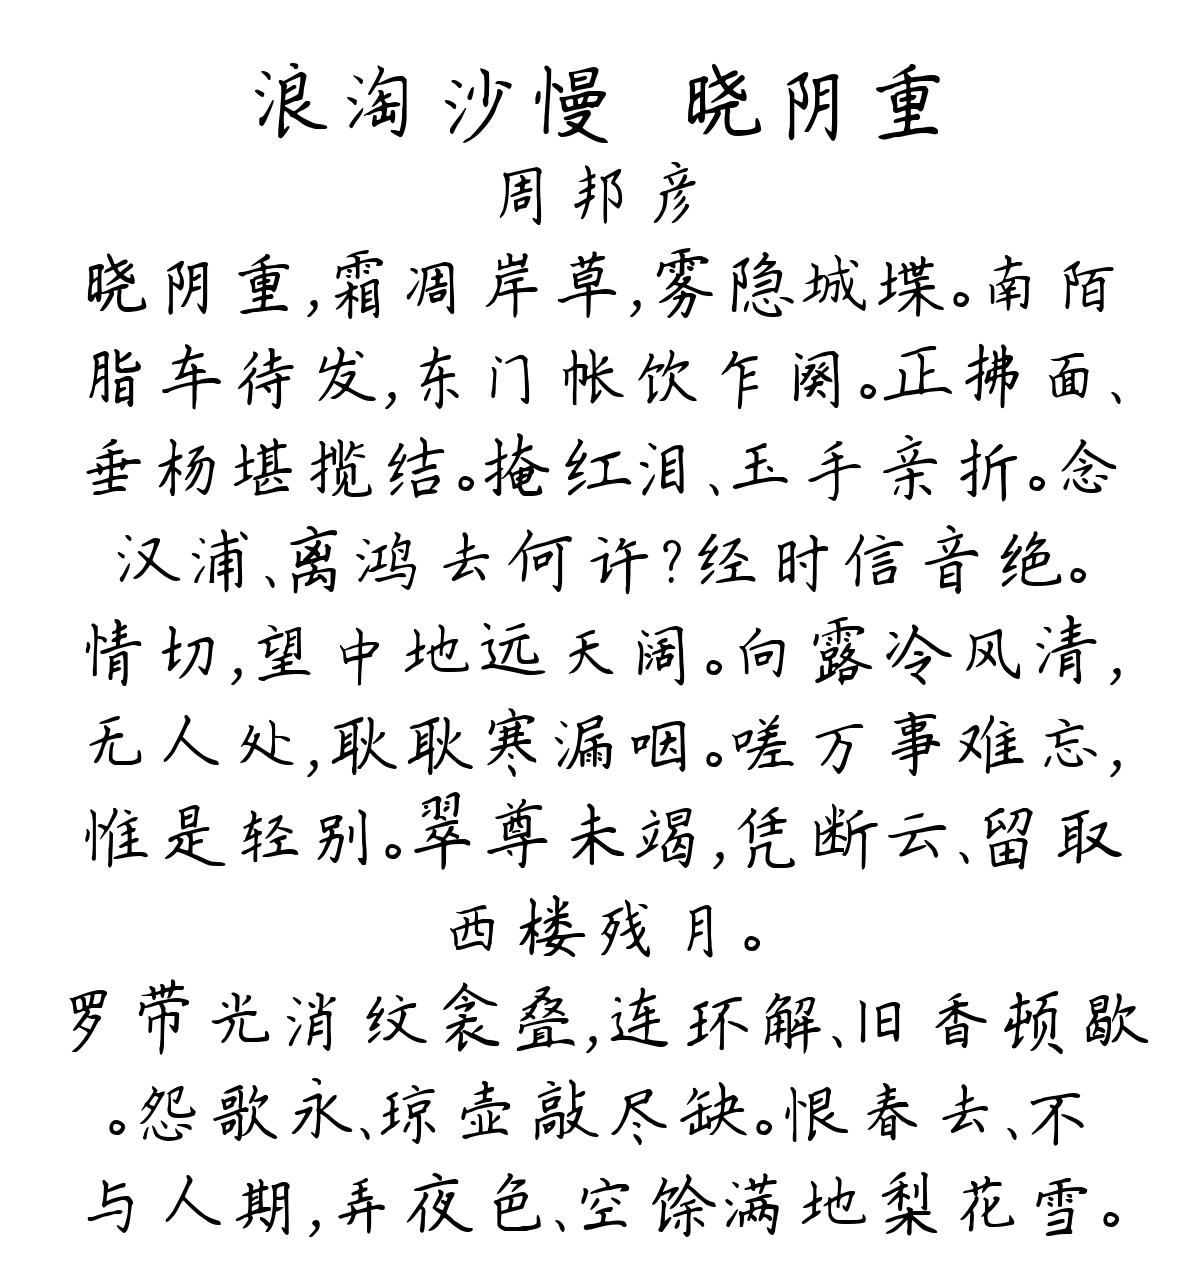 浪淘沙慢 晓阴重
周邦彦
晓阴重,霜凋岸草,雾隐城堞。南陌
脂车待发,东门帐饮乍阕。正拂面、
垂杨堪揽结。掩红泪、玉手亲折。念
汉浦、离鸿去何许?经时信音绝。
情切,望中地远天阔。向露冷风清,
无人处,耿耿寒漏咽。嗟万事难忘,
惟是轻别。翠尊未竭,凭断云、留取
西楼残月。
罗带光消纹衾叠,连环解、旧香顿歇
。怨歌永、琼壶敲尽缺。恨春去、不
与人期,弄夜色、空馀满地梨花雪。